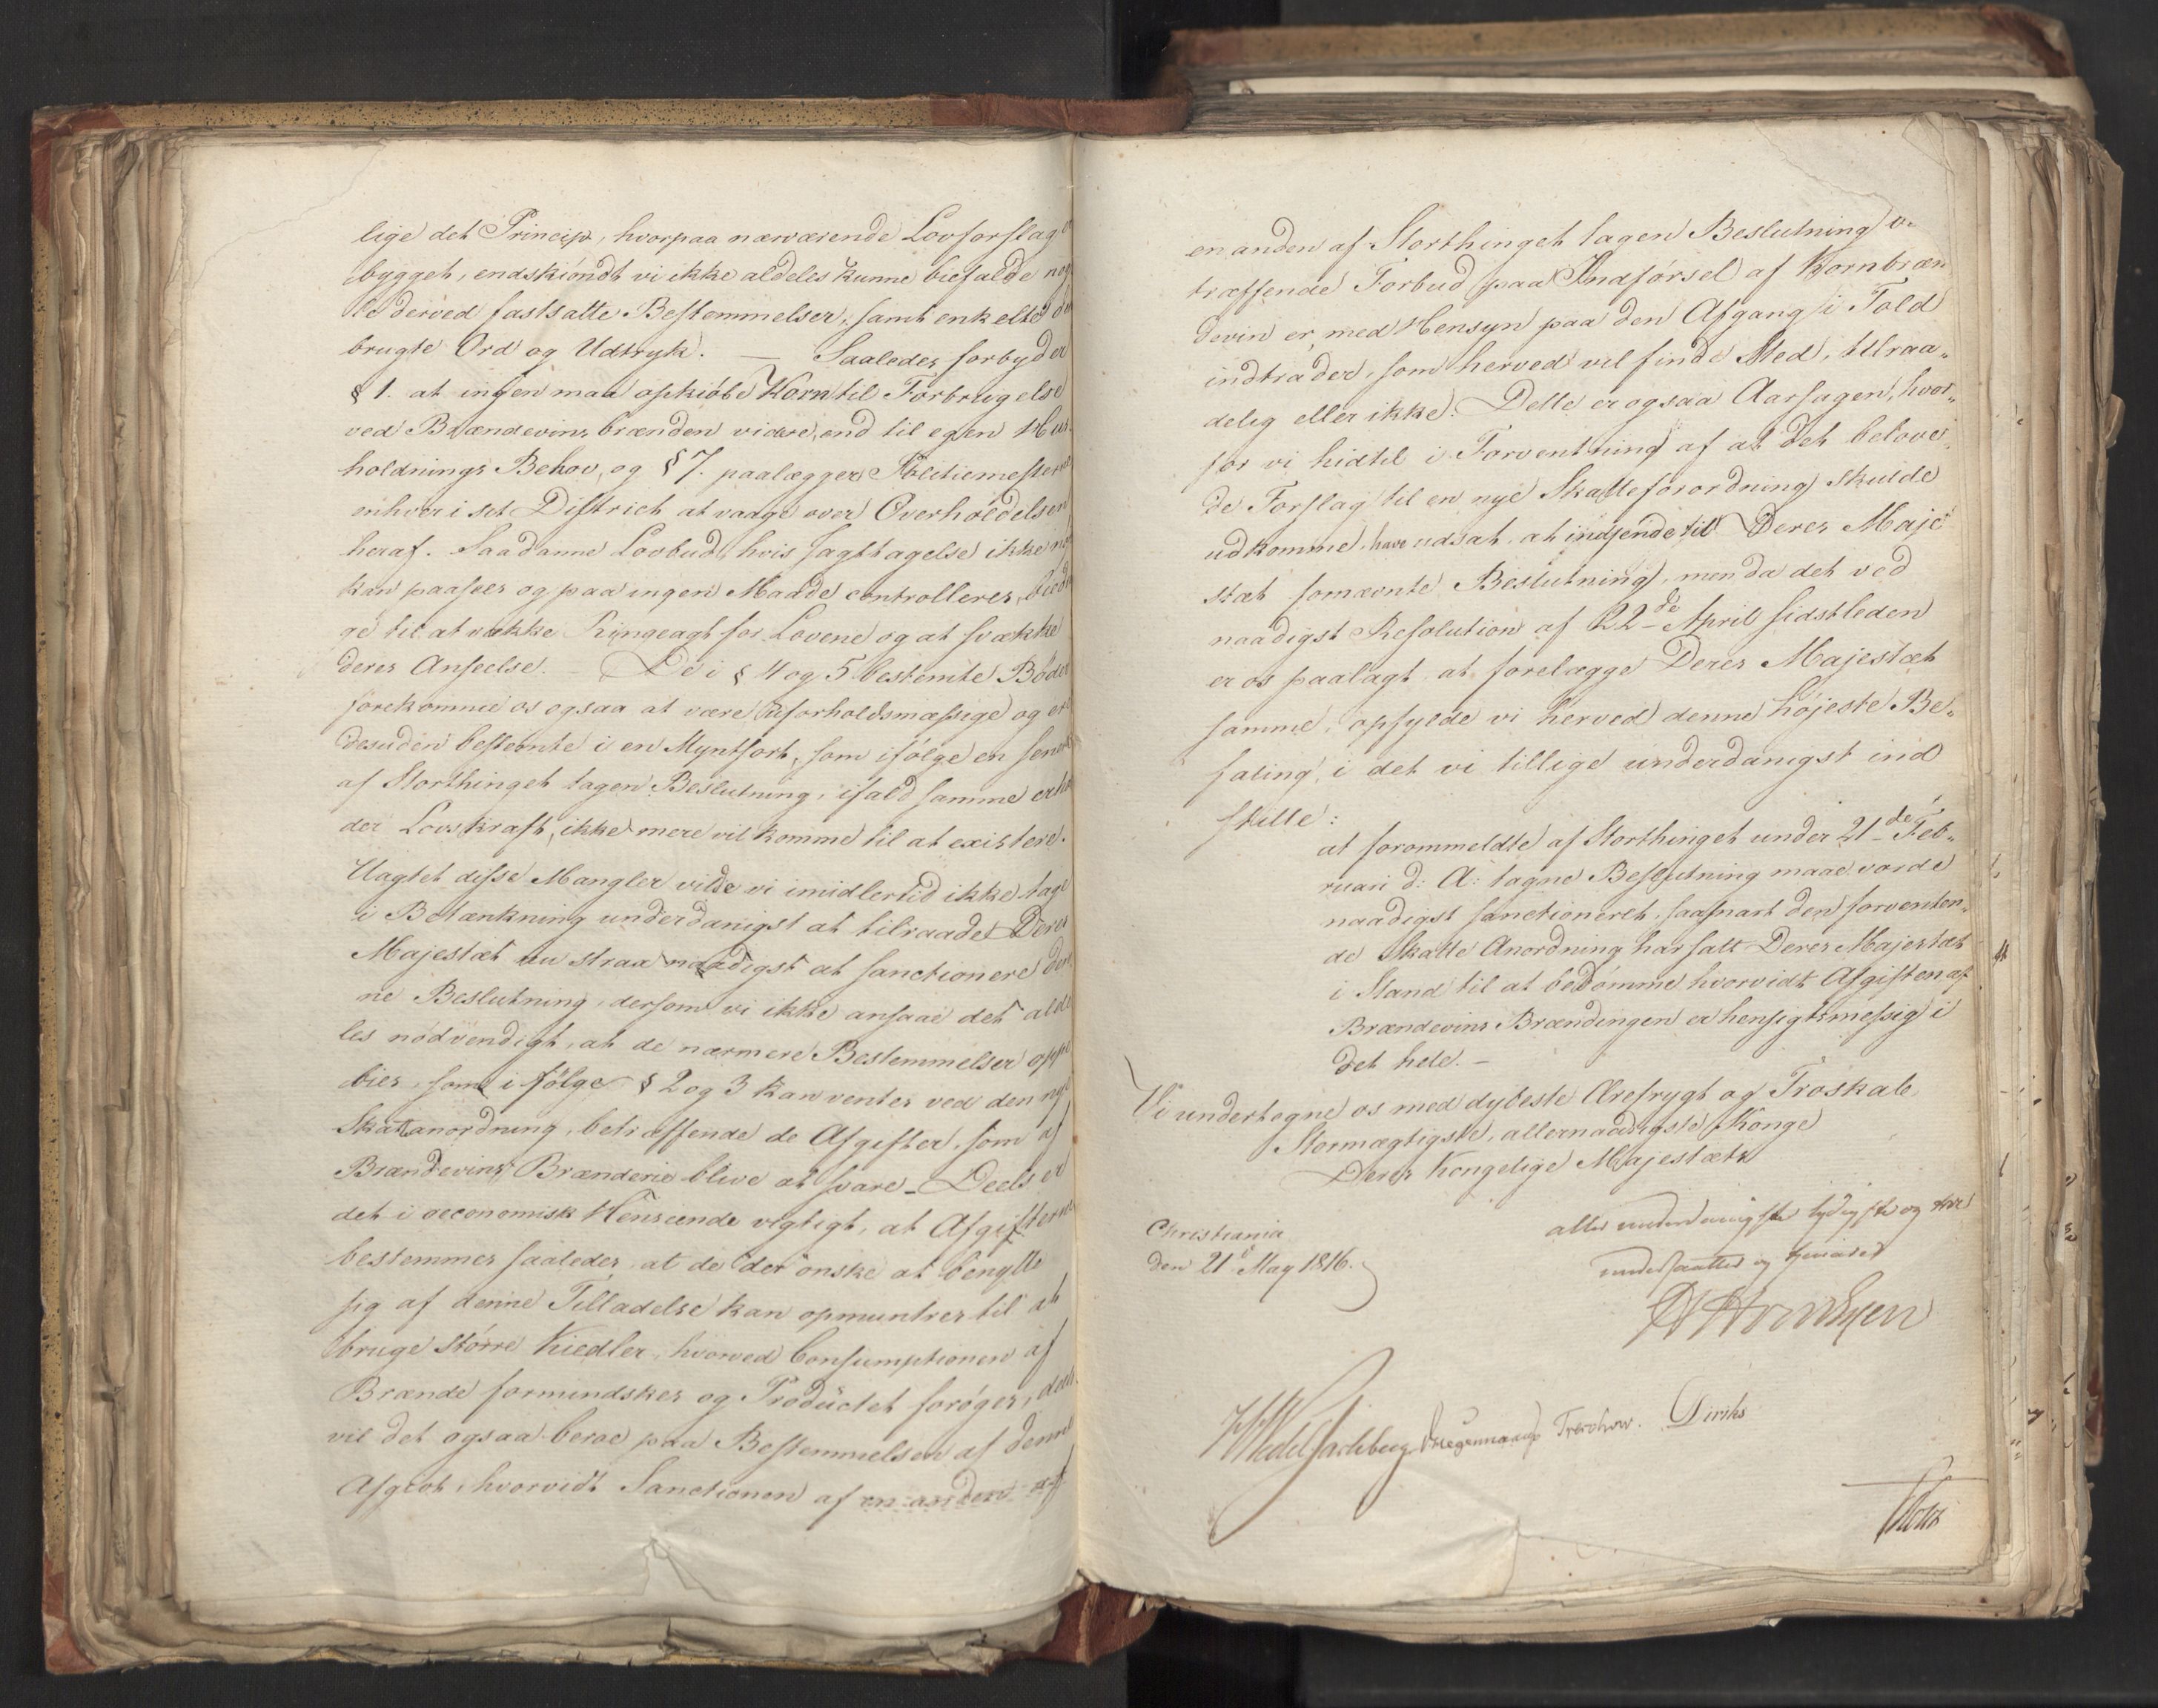 lige det Princip, hvorpaa nærværende Lovforslag
bygget, endskiöndt vi ikke aldeles kunne biefalde nog
le derved fastsatte Bestemmelser, samt enkelte
brugte Ord og Udtryk. — Saaledes forbyder
§ 1. at ingen maa opkiöbe Korn til Forbrugelse
ved Brændevins brænden videre, end til egen Huus
holdnings Behov, og § 7. paalægger Politiemesterne
enhver i sit District at vaage over Overholdelsen
heraf. Saadanne Lovbud, hvis Iagttagelse ikke
kan paasees og paa ingen Maade controlleres, bidra
ge til at vække Ringeagt for Lovene og at svække
deres Anseelse. – De i § 4 og 5 bestemte Böder
forekomme os ogsaa at være uforholdsmæssige og ere
desuden bestemte i en Myntsort, som ifölge en senere
af Storthinget tagen Beslutning, ifald samme erhol
der Lovskraft, ikke mere vil komme til at existere.
Uagtet disse Mangler vilde vi imidlertid ikke tage
i Betænkning underdanigst at tilraade Deres
Majestæt nu strax naadigst at sanctionere den
ne Beslutning, dersom vi ikke ansaae det alde
les nödvendigt, at de nærmere Bestemmelser oppe
bies, som i fölge § 2 og 3 kan ventes ved den nye
Skatanordning, betræffende de Afgifter, som af
Brændevins Brænderie blive at svare – Deels er
det i oeconomisk Henseende vigtigt, at Afgifterne
bestemmes saaledes, at de der önske at benytte
sig af denne Tilladelse kan opmuntres til at
bruge större Kiedler, hvorved Consumptionen af
Brænde formindskes og Productet foröges, deels
vil det ogsaa beroe paa Bestemmelsen af denne
Afgivt, hvorvidt Sanctionen af en anden af
en anden af Storthinget tagen Beslutning
træffende Forbud paa Indförsel af Kornbræn
devin er, med Hensyn paa den Afgang i Told
indtrader, som herved vil finde Sted, tilraa„
delig eller ikke. Dette er ogsaa Aarsagen, hvor„
for vi hidtil i Forventning af at det belove
de Forslag til en nye Skatteforordning skulde
udkomme, have udsat at indsende til Deres Maje
stæt somævnte Beslutning, men da det ved
naadigst Resolution af 22de April sidstleden
er os paalagt at forelægge Deres Majestæt
samme, opfylde vi herved denne höjeste Be„
faling, i det vi tillige underdanigst ind
stille:
at forommeldte af Storthinget under 21de Feb„
ruari d: A: tagne Beslutning maae vorde
naadigst sanctioneret, saasnart den forventen„
de Skatte Anordning har satt Deres Majestæt
i Stand til at bedömme, hvorvidt Afgiften af
Brændevins Brændingen er hensigtsmessig i
det hele. –
Vi undertegne os med dybeste Ærefrygt og Troskab
Stormægtigste, allernaadigste Konge
Deres Kongelige Majestæts
Christiania
den 21de May 1816.
aller underdanigste lydigste og troe
undersaatter og tjenere
Wedel Jarlsberg Krogh Treschow. Diriks
Holst